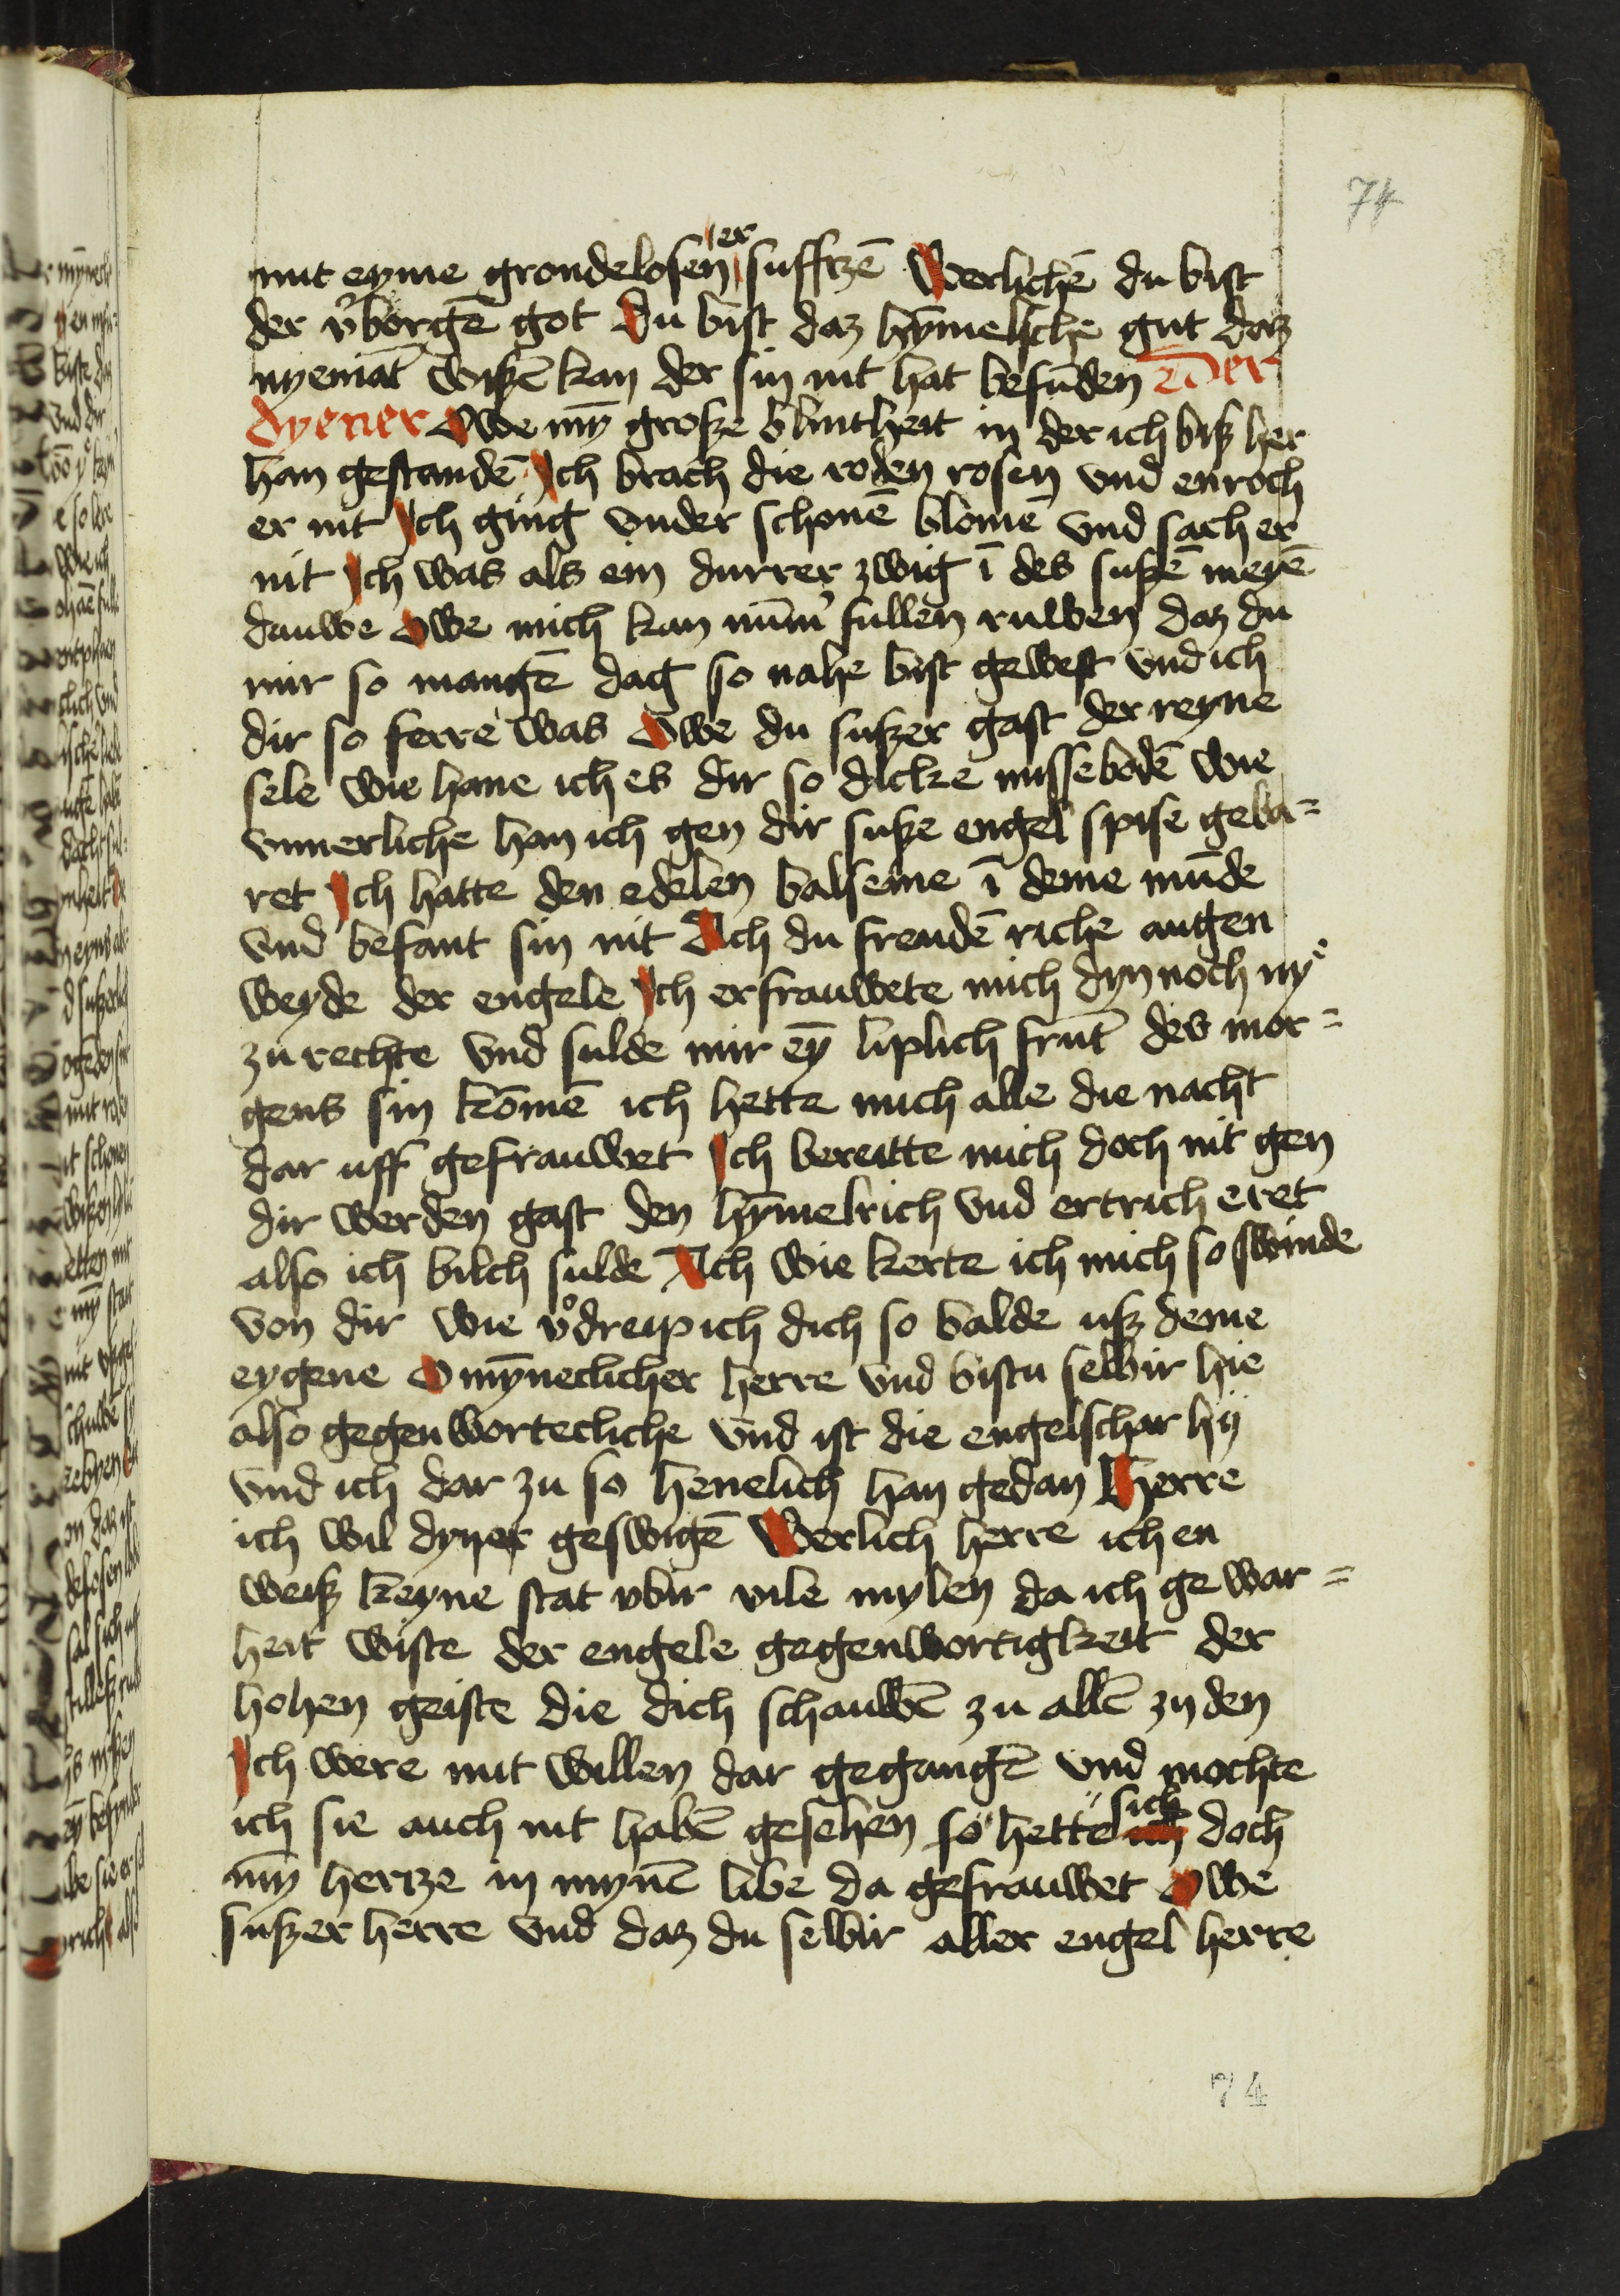 74
mit eyme grondelosen er suffzē Werlichē du bist
der v'borgē got Du bist daz hȳmelsche gut daz
nyemāt wißē kan der sin nit hat befūden Der
dyener Owe mȳ große blintheit in der ich biß her
han gestandē Ich brach die roden rosen vnd enroch
er nit Ich ging vnder schonē blomē vnd sach er
nit Ich was als ein durrer zwig ī des sußē meyē
dauwe Owe mich kan nūm' fullen ruwen daz du
mir so mangē dag so nahe bist gewest vnd ich
dir so ferre was Owe du sußer gast der reyne
sele wie hane ich es dir so dicke missebodē wie
vnnerliche han ich gen dir suße engel spise geba=
ret Ich hatte den edelen balseme ī deme mūde
vnd befant sin nit Ach du freudē riche augen
weyde der engele Ich erfrauwete mich dyn noch ny
zu rechte vnd sulde mir eȳ liplich frūt des mor=
gens sin komē ich hette mich alle die nacht
dar uff gefrauwet Ich bereitte mich doch nit gen
dir werden gast den hȳmelrich vnd ertrich eret
also ich bilch sulde Ach wie kerte ich mich so swinde
von dir wie v'dreip ich dich so balde uß deme
eygene O mȳneclicher herre vnd bistu selbir hie
also gegenworteclich vnd ist die engelschar hij
vnd ich dar zu so henelich han gedan Herre
ich wil dyner geswigē Werlich herre ich en
weiß keyne stat vbir vile mylen da ich gewar=
heit wiste der engele gegenwortigkeit der
hohen geiste die dich schauwē zu allē zyden
Ich were mit willen dar gegangē vnd mochte
ich sie auch nit habē gesehen so hette sich doch
mȳ hertze in mynē libe da gefrauwet Owe
sußer herre vnd daz du selbir aller engel herre
74